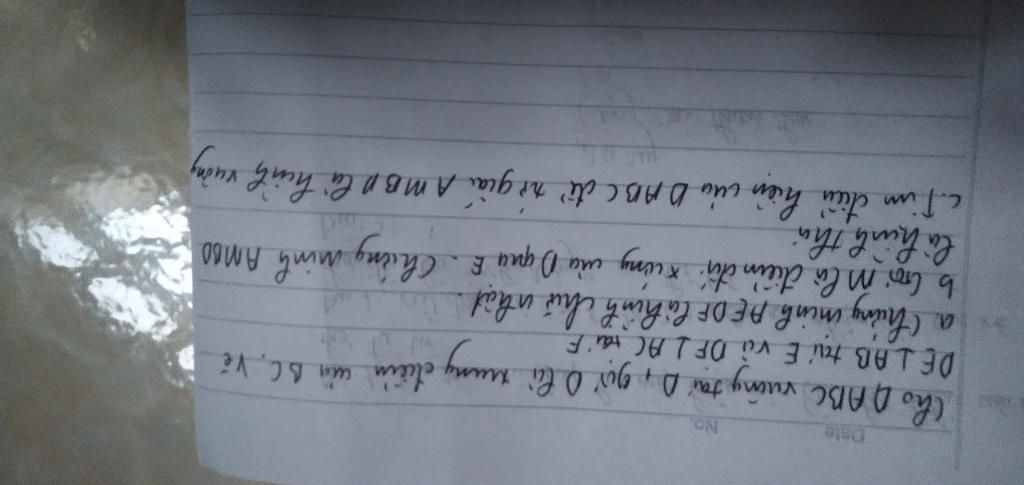 Date
No.
Cho ΔABC vuông tại D, gọi D là trung điểm của BC. Vẽ
DE ⊥ AB tại E và DF ⊥ AC tại F
a. Chứng minh AEDF là hình chữ nhật
b Gọi M là điểm đối xứng của D qua E. Chứng minh AMBD
là hình thoi
c. Tìm điều kiện của ΔABC để tứ giác AMBD là hình vuông